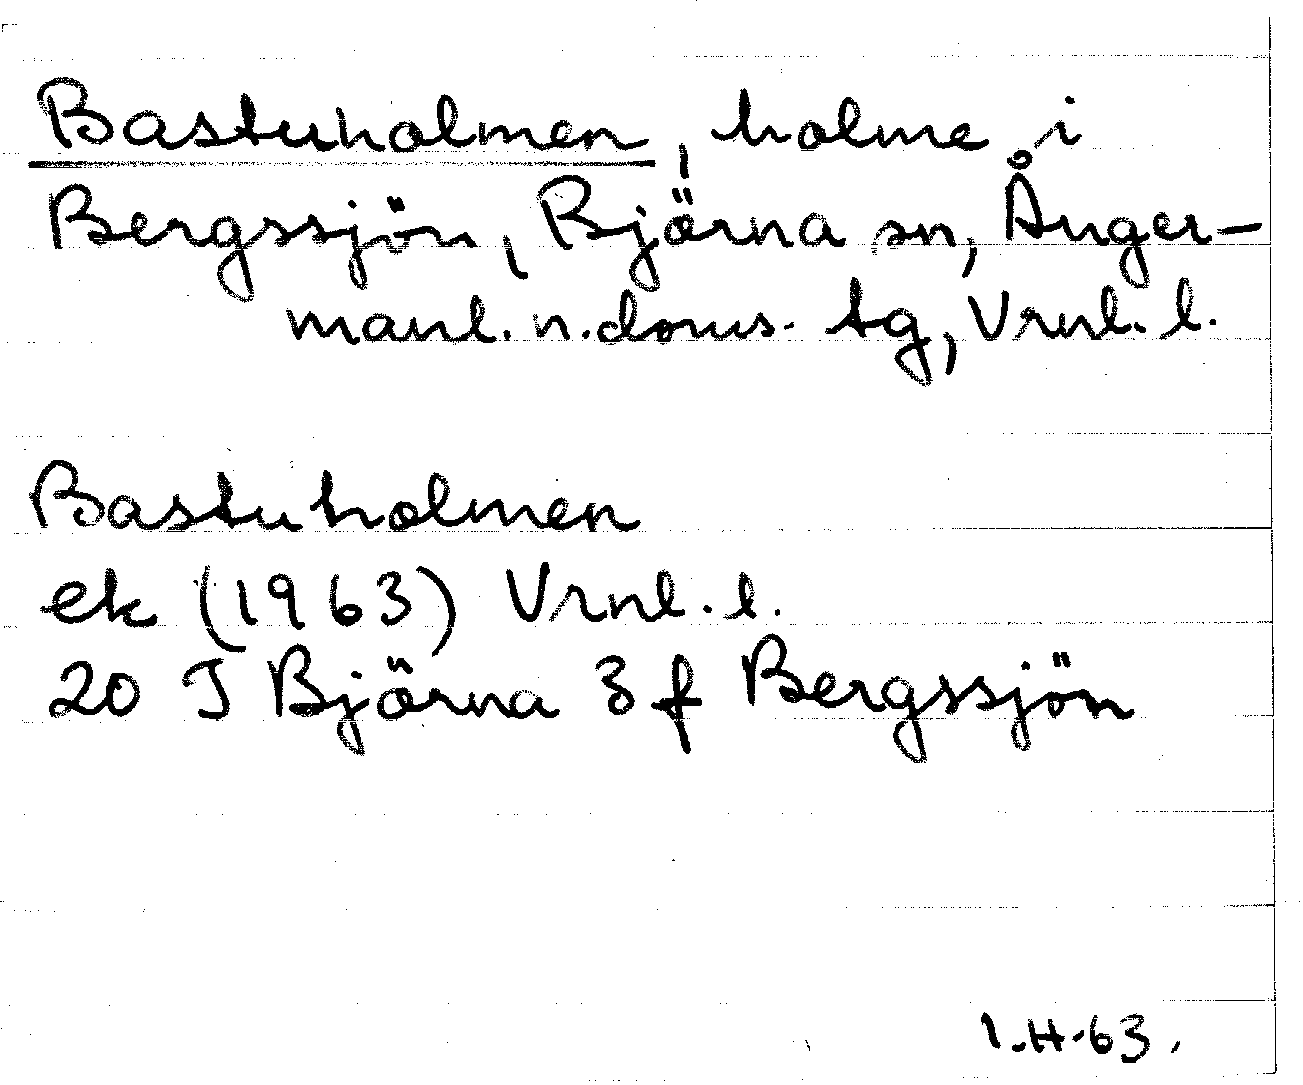 Bastuholmen, holme i
Bergssjön, Björna sn, Ånger-
manl. n. doms. tg, Vrnl. l.
Bastuholmen
ek (1963) Vrnl. l.
20 J Björna 3 f Bergssjön
I.H-63.